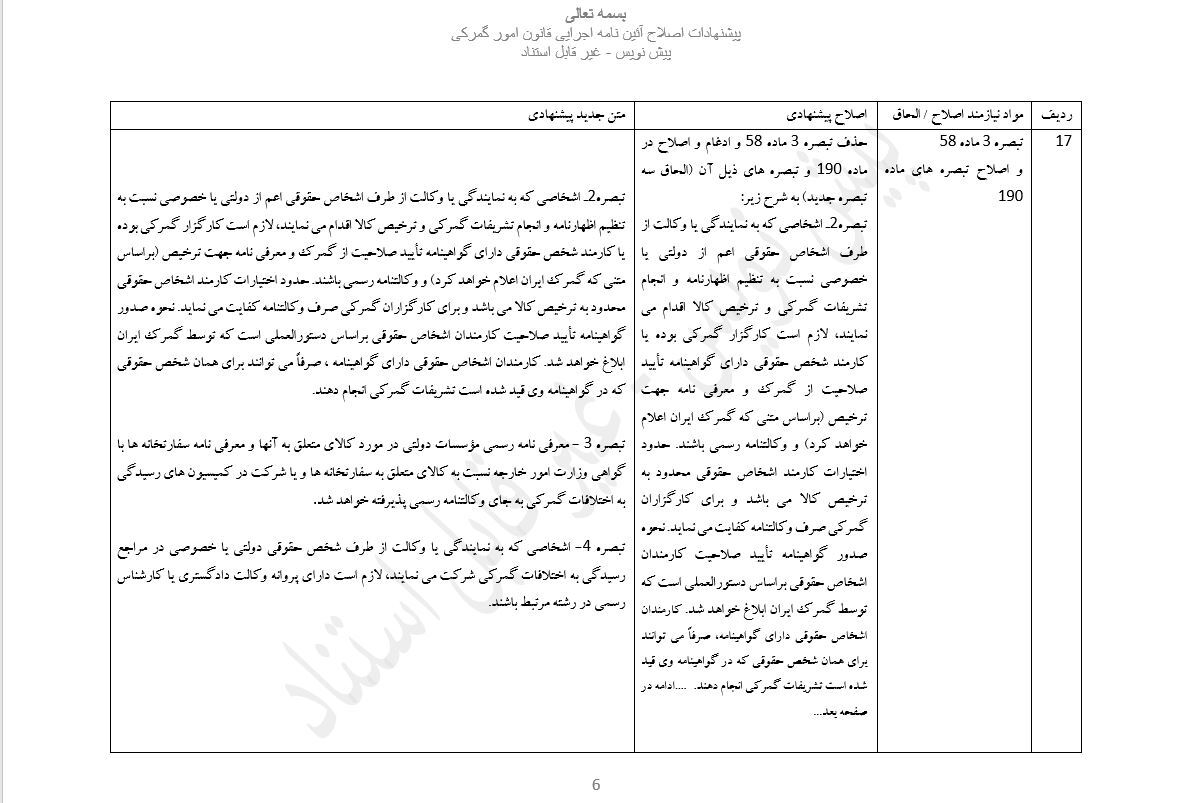 بسمه تعالی
پیشنهادات اصلاح آئین نامه اجرایی قانون امور گمرکی
پیش نویس - غیر قابل استناد
ردیف
مواد نیازمند اصلاح / الحاق
اصلاح پیشنهادی
متن جدید پیشنهادی
17
تبصره 3 ماده 58
و اصلاح تبصره های ماده
190
حذف تبصره 3 ماده 58 و ادغام و اصلاح در
ماده 190 و تبصره های ذیل آن (الحاق سه
تبصره جدید) به شرح زیر:
تبصره2ـ اشخاصی که به نمایندگی یا وکالت از
طرف اشخاص حقوقی اعم از دولتی یا
خصوصی نسبت به تنظیم اظهارنامه و انجام
تشریفات گمرکی و ترخیص کالا اقدام می
نمایند، لازم است کارگزار گمرکی بوده یا
کارمند شخص حقوقی دارای گواهینامه تأیید
صلاحیت از گمرک و معرفی نامه جهت
ترخیص (براساس متنی که گمرک ایران اعلام
خواهد کرد) و وکالتنامه رسمی باشند. حدود
اختیارات کارمند اشخاص حقوقی محدود به
ترخیص کالا می باشد و برای کارگزاران
گمرکی صرف وکالتنامه کفایت می نماید. نحوه
صدور گواهینامه تأیید صلاحیت کارمندان
اشخاص حقوقی براساس دستورالعملی است که
توسط گمرک ایران ابلاغ خواهد شد. کارمندان
اشخاص حقوقی دارای گواهینامه، صرفاً می توانند
برای همان شخص حقوقی که در گواهینامه وی قید
شده است تشریفات گمرکی انجام دهند. ....ادامه در
صفحه بعد...
تبصره2ـ اشخاصی که به نمایندگی یا وکالت از طرف اشخاص حقوقی اعم از دولتی یا خصوصی نسبت به
تنظیم اظهارنامه و انجام تشریفات گمرکی و ترخیص کالا اقدام می نمایند، لازم است کارگزار گمرکی بوده
یا کارمند شخص حقوقی دارای گواهینامه تأیید صلاحیت از گمرک و معرفی نامه جهت ترخیص (براساس
متنی که گمرک ایران اعلام خواهد کرد) و وکالتنامه رسمی باشند. حدود اختیارات کارمند اشخاص حقوقی
محدود به ترخیص کالا می باشد و برای کارگزاران گمرکی صرف وکالتنامه کفایت می نماید. نحوه صدور
گواهینامه تأیید صلاحیت کارمندان اشخاص حقوقی براساس دستورالعملی است که توسط گمرک ایران
ابلاغ خواهد شد. کارمندان اشخاص حقوقی دارای گواهینامه ، صرفاً می توانند برای همان شخص حقوقی
که در گواهینامه وی قید شده است تشریفات گمرکی انجام دهند.
تبصره 3 – معرفی نامه رسمی مؤسسات دولتی در مورد کالای متعلق به آنها و معرفی نامه سفارتخانه ها با
گواهی وزارت امور خارجه نسبت به کالای متعلق به سفارتخانه ها و یا شرکت در کمیسیون های رسیدگی
به اختلافات گمرکی به جای وکالتنامه رسمی پذیرفته خواهد شد.
تبصره 4– اشخاصی که به نمایندگی یا وکالت از طرف شخص حقوقی دولتی یا خصوصی در مراجع
رسیدگی به اختلافات گمرکی شرکت می نمایند، لازم است دارای پروانه وکالت دادگستری یا کارشناس
رسمی در رشته مرتبط باشند.
پیش نویس - غیر قابل استناد
6